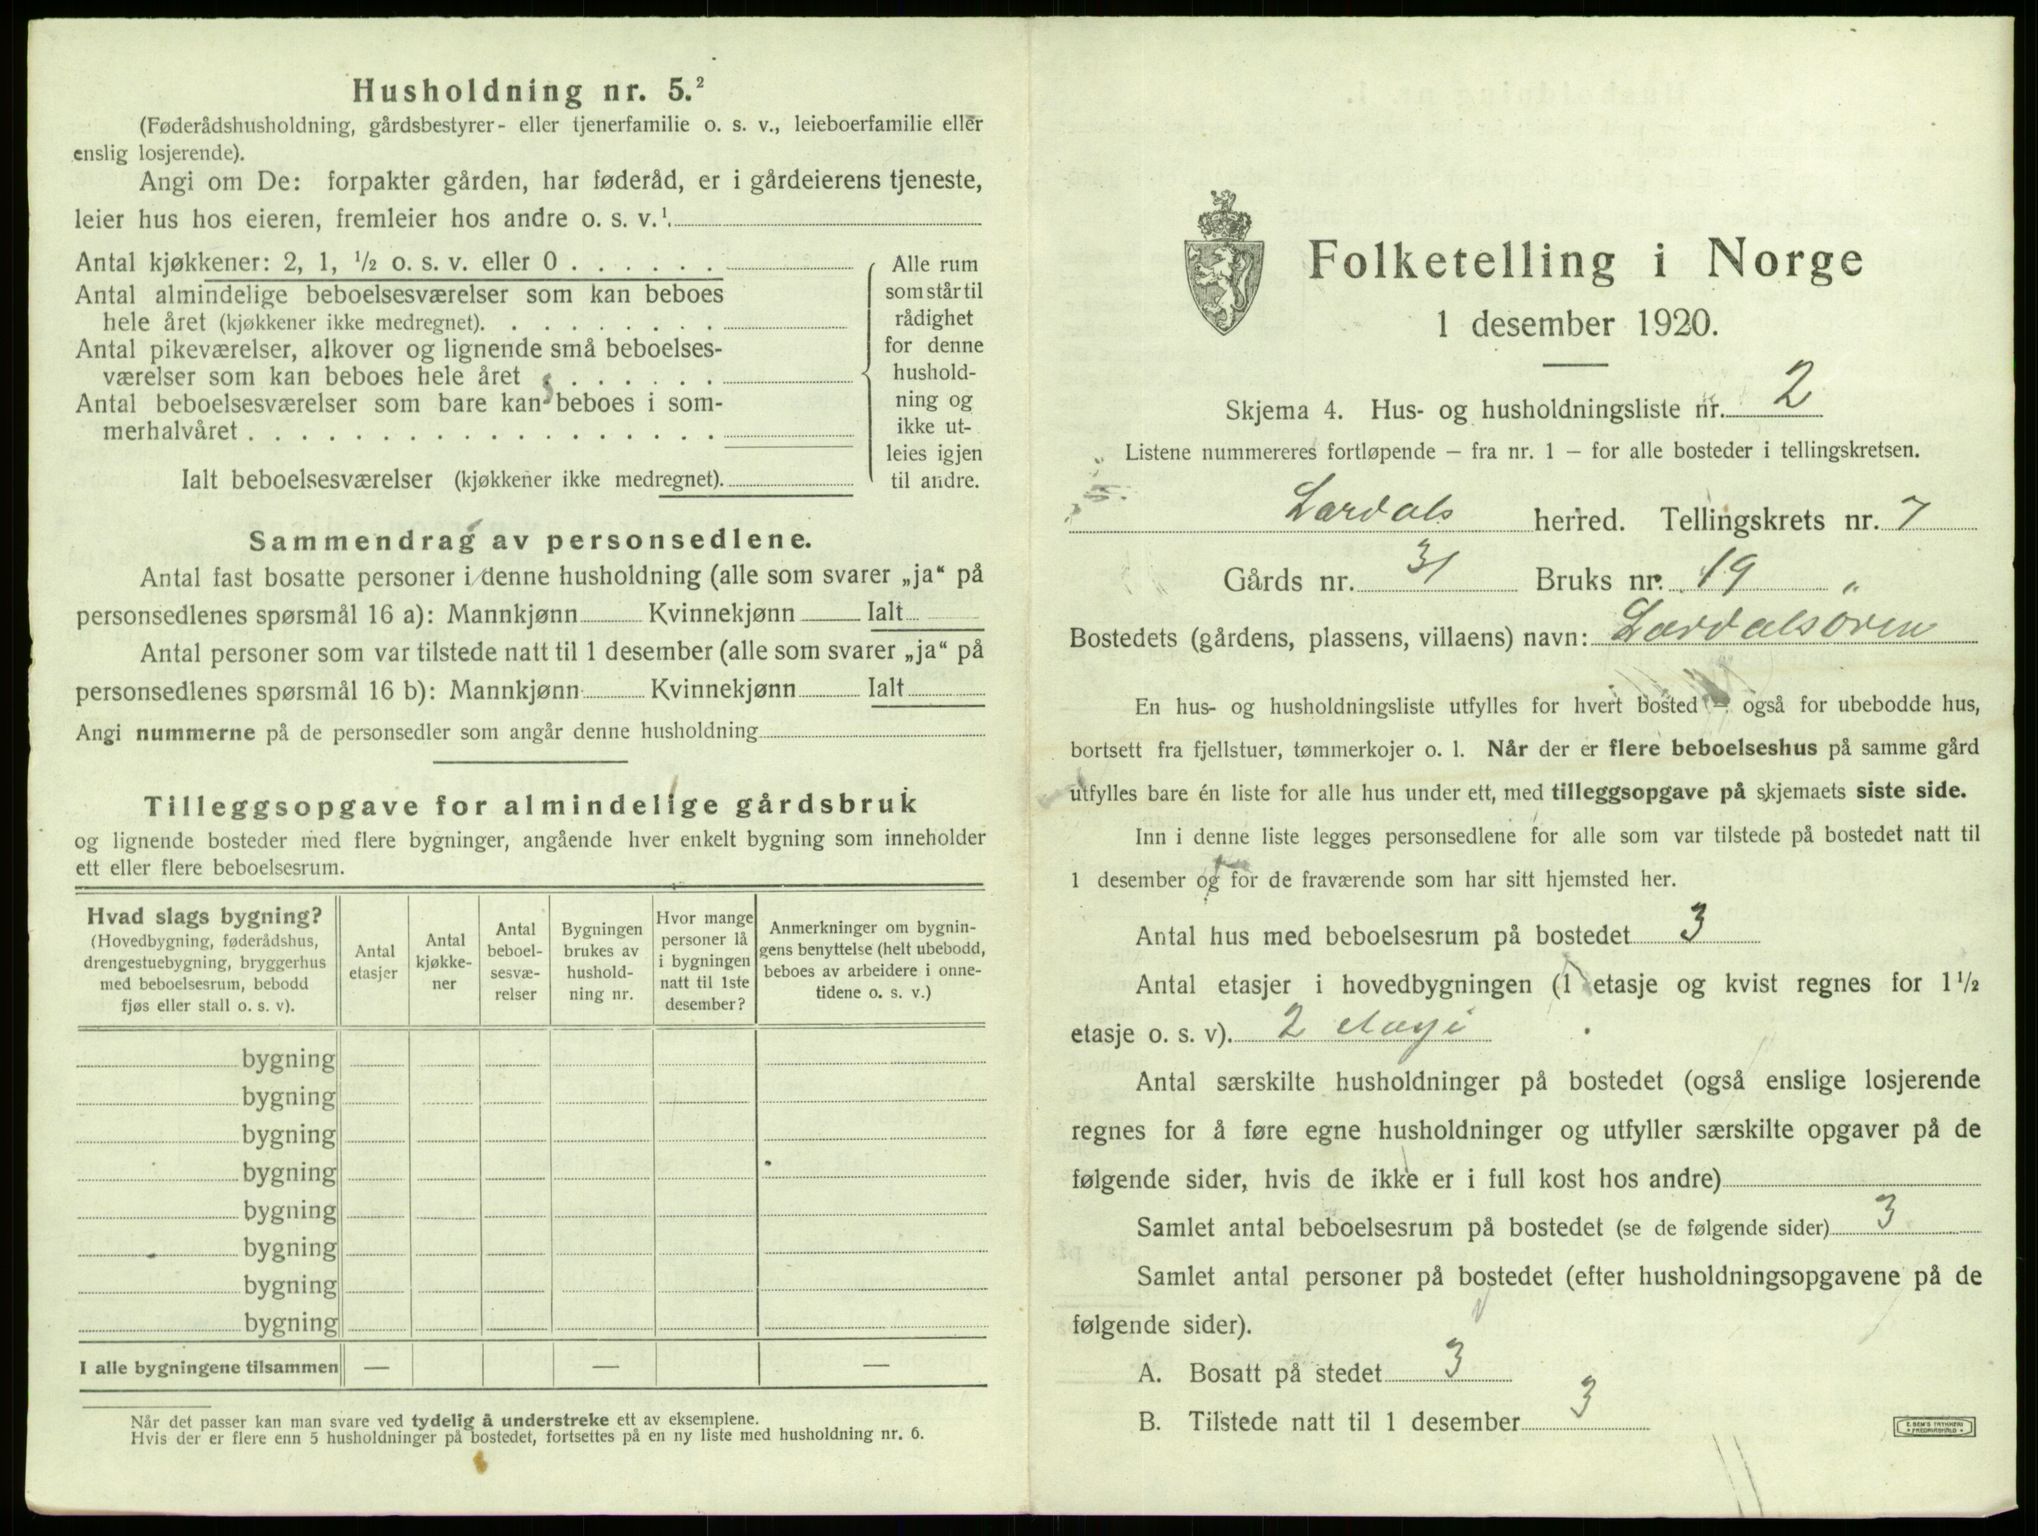 Husholdning nr. 5.²
(Føderådshusholdning, gårdsbestyrer- eller tjenerfamilie o. s. v., leieboerfamilie eller
enslig losjerende).
Angi om De: forpakter gården, har føderåd, er i gårdeierens tjeneste,
leier hus hos eieren, fremleier hos andre o. s. v.¹
Antal kjøkkener: 2, 1, ½ o. s. v. eller 0 . . . . . .
Antal almindelige beboelsesværelser som kan beboes
hele året (kjøkkener ikke medregnet). . . . . . . . .
Antal pikeværelser, alkover og lignende små beboelses-
værelser som kan beboes hele året . . . . . . .
Antal beboelsesværelser som bare kan beboes i som-
merhalvåret . . . . . . . . . . . . . . . . . .
Ialt beboelsesværelser (kjøkkener ikke medregnet).
Alle rum
som står til
rådighet
for denne
hushold-
ning og
ikke ut-
leies igjen
til andre.
Sammendrag av personsedlene.
Antal fast bosatte personer i denne husholdning (alle som svarer „ja“ på
personsedlenes spørsmål 16 a): Mannkjønn Kvinnekjønn Ialt
Antal personer som var tilstede natt til 1 desember (alle som svarer „ja“ på
personsedlenes spørsmål 16 b): Mannkjønn Kvinnekjønn Ialt
Angi nummerne på de personsedler som angår denne husholdning
Tilleggsopgave for almindelige gårdsbruk
og lignende bosteder med flere bygninger, angående hver enkelt bygning som inneholder
ett eller flere beboelsesrum.
Hvad slags bygning?
(Hovedbygning, føderådshus,
drengestuebygning, bryggerhus
med beboelsesrum, bebodd
fjøs eller stall o. s. v).
Antal
etasjer
Antal
kjøkke-
ner
Antal
beboel-
sesvæ-
relser
Bygningen
brukes av
hushold-
ning nr.
Hvor mange
personer lå
i bygningen
natt til 1ste
desember?
Anmerkninger om bygnin-
gens benyttelse (helt ubebodd,
beboes av arbeidere i onne-
tidene o. s. v.)
bygning
bygning
bygning
bygning
bygning
bygning
bygning
bygning
I alle bygningene tilsammen — — —
Når det passer kan man svare ved tydelig å understreke ett av eksemplene.
Hvis der er flere enn 5 husholdninger på bostedet, fortsettes på en ny liste med husholdning nr. 6.
Folketelling i Norge
1 desember 1920.
Skjema 4. Hus- og husholdningsliste nr. 2
Listene nummereres fortløpende – fra nr. 1 – for alle bosteder i tellingskretsen.
Lærdals herred. Tellingskrets nr. 7
Gårds nr. 31 Bruks nr. 19
Bostedets (gårdens, plassens, villaens) navn: Lærdalsøren
En hus- og husholdningsliste utfylles for hvert bosted – også for ubebodde hus,
bortsett fra fjellstuer, tømmerkojer o. l. Når der er flere beboelseshus på samme gård
utfylles bare én liste for alle hus under ett, med tilleggsopgave på skjemaets siste side.
Inn i denne liste legges personsedlene for alle som var tilstede på bostedet natt til
1 desember og for de fraværende som har sitt hjemsted her.
Antal hus med beboelsesrum på bostedet 3
Antal etasjer i hovedbygningen (1 etasje og kvist regnes for 1½
etasje o. s. v). 2
Antal særskilte husholdninger på bostedet (også enslige losjerende
regnes for å føre egne husholdninger og utfyller særskilte opgaver på de
følgende sider, hvis de ikke er i full kost hos andre)
Samlet antal beboelsesrum på bostedet (se de følgende sider) 3
Samlet antal personer på bostedet (efter husholdningsopgavene på de
følgende sider).
A. Bosatt på stedet 3
B. Tilstede natt til 1 desember 3
E. SEM'S TRYKKERI
FREDRIKSHALD